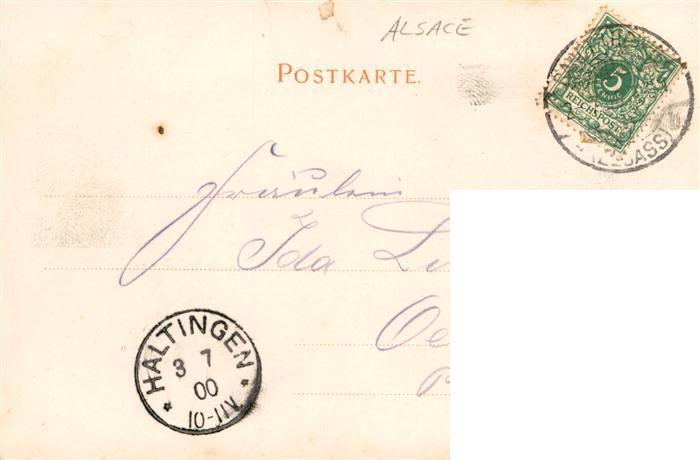 ALSACE
POSTKARTE.
5
PFENNIG
REICHSPOST
(ELSASS)
Fräulein
Ida
HALTINGEN
3 7
00
10-11V.